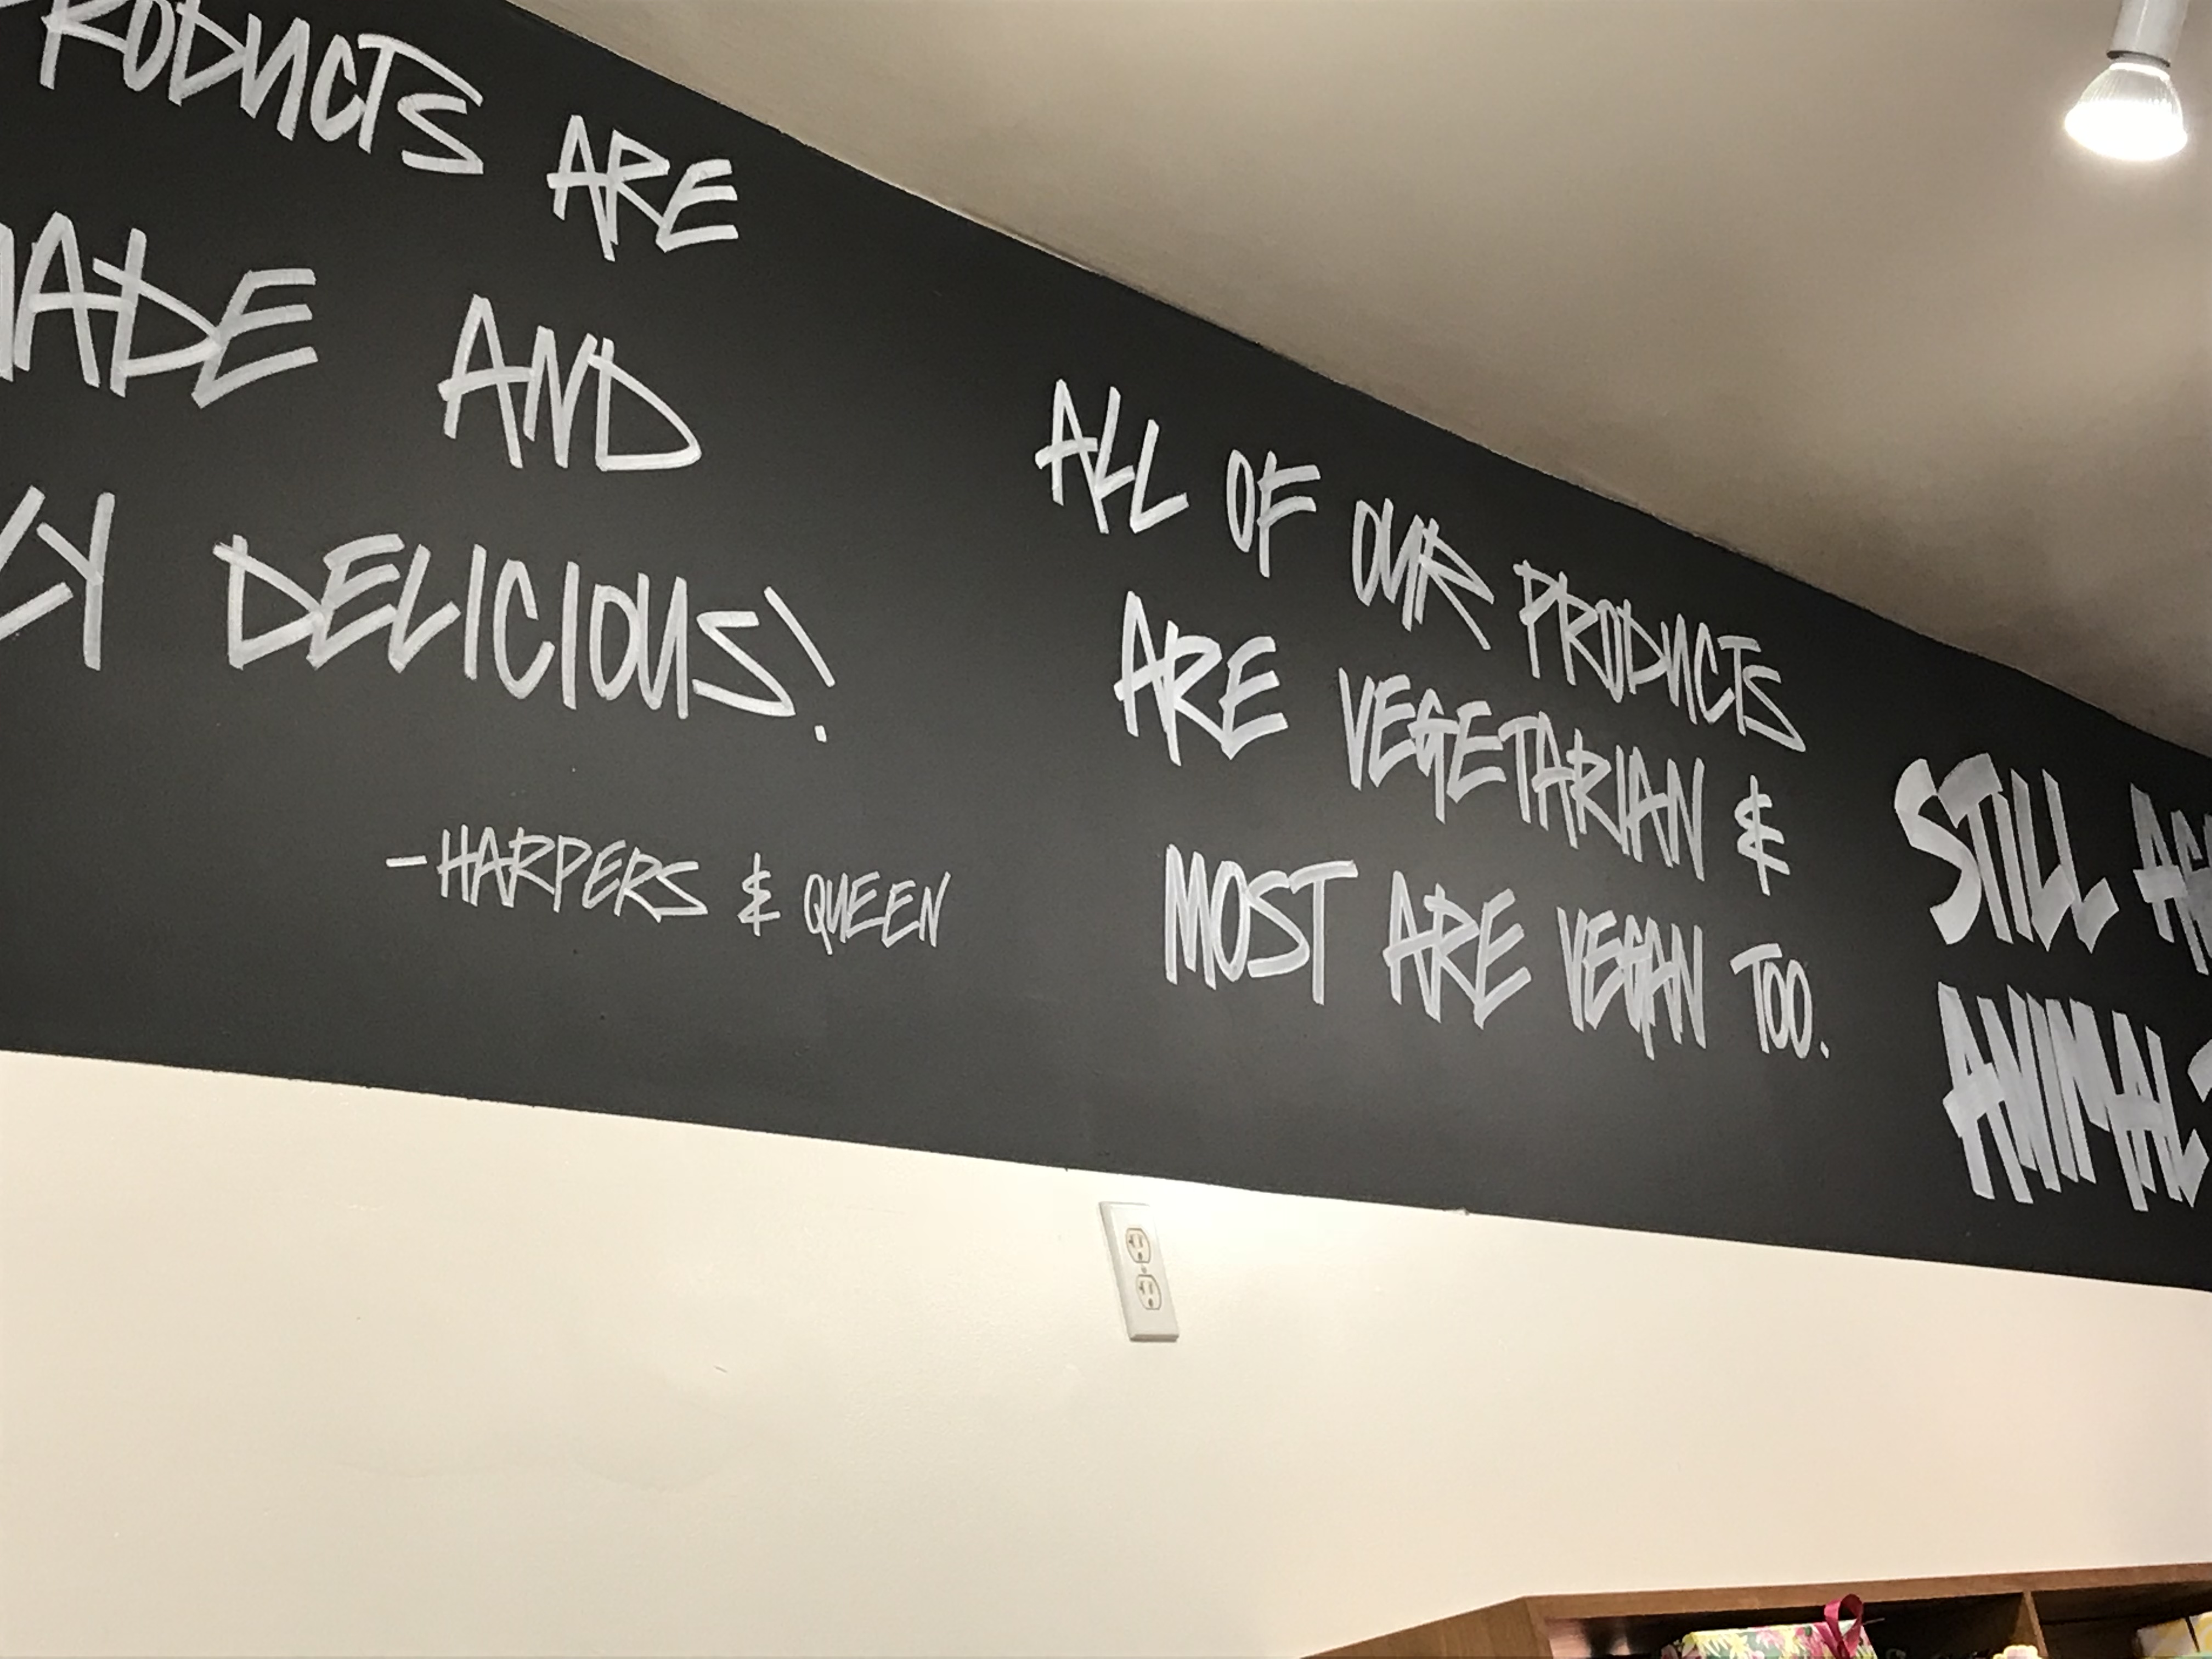 PRODUCTS ARE
MADE AND
DELICIOUS!
-HARPERS & QUEEN
ALL OF OUR PRODUCTS
ARE VEGETARIAN &
MOST ARE VEGAN TOO.
STILL
ANIMAL